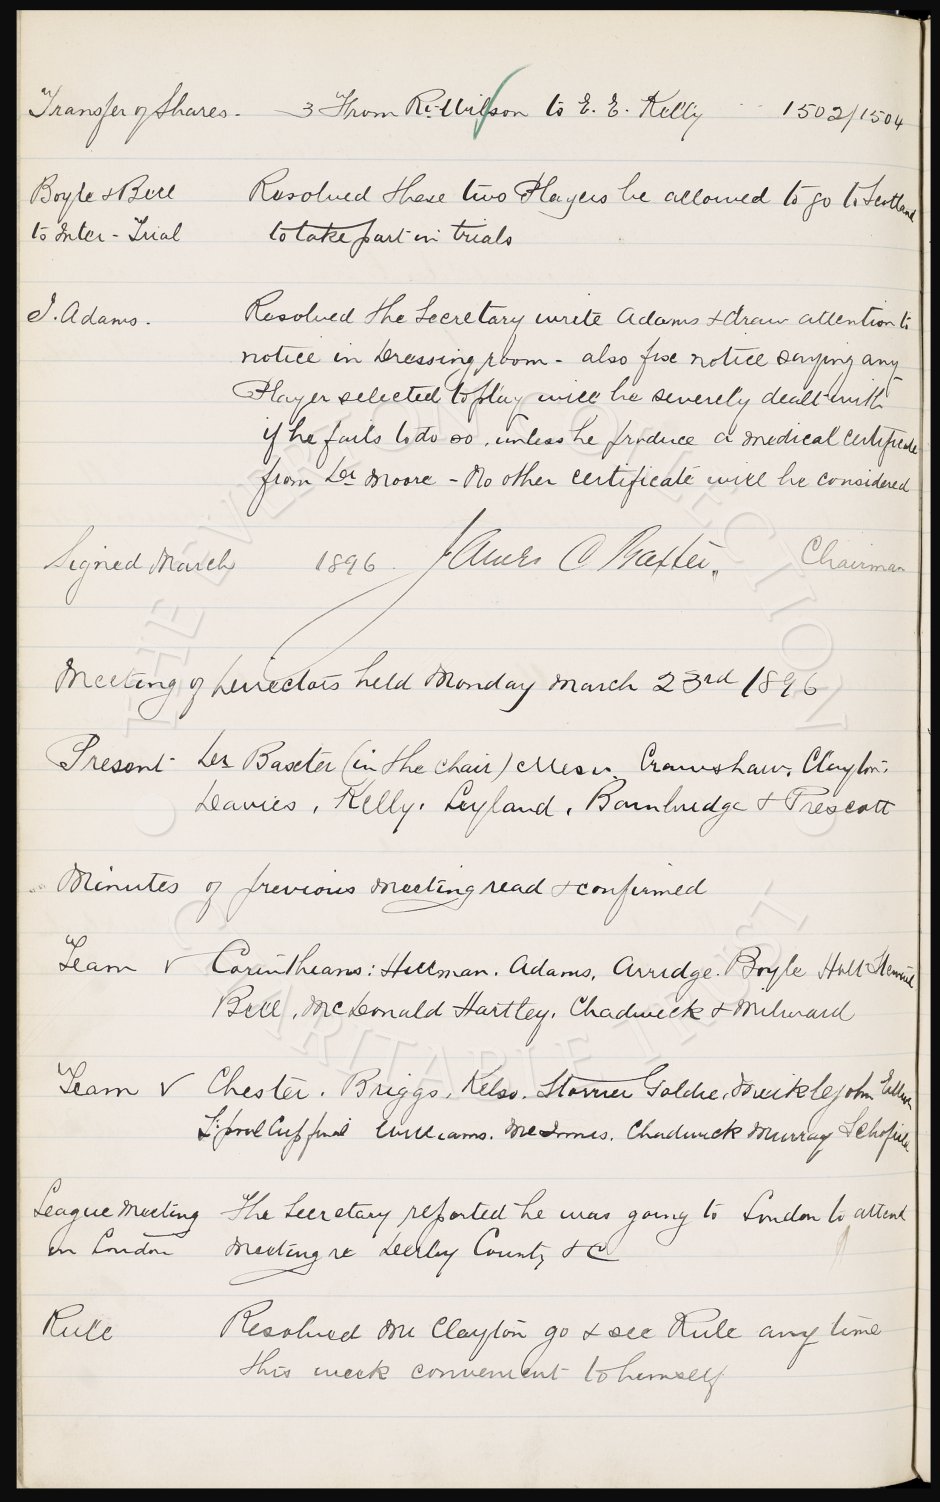 Transfer of Shares - 3 From R. Wilson to E. E. Kelly 1502/1504
Boyle & Bell Resolved these two Players be allowed to go to Scotland
to Inter-Trial to take part in trials
J. Adams. Resolved the Secretary write Adams & draw attention to
notice in Dressing room - also fix notice saying any
Player selected to play will be severely dealt with
if he fails to do so, unless he produce a medical certificate
from Dr Moore - No other certificate will be considered
Signed March 1896 James C Baxter Chairman
Meeting of Directors held Monday March 23rd 1896
Present Dr Baxter (in the chair) Messrs. Crawshaw, Clayton,
Davies, Kelly, Leyland, Bainbridge & Prescott
Minutes of previous meeting read & confirmed
Team v Corinthians: Hillman. Adams, Arridge. Boyle Holt Stewart
Bell, McDonald Hartley, Chadwick & Milward
Team v Chester. Briggs, Kelso, Storrier Goldie, Meiklejohn Elliott
L'pool Cup final Williams. McInnes. Chadwick Murray Schofield
League Meeting The Secretary reported he was going to London to attend
in London Meeting re Derby County & C
Rule Resolved Mr Clayton go & see Rule any time
this week convenient to himself
THE EVERTON COLLECTION
CHARITABLE TRUST